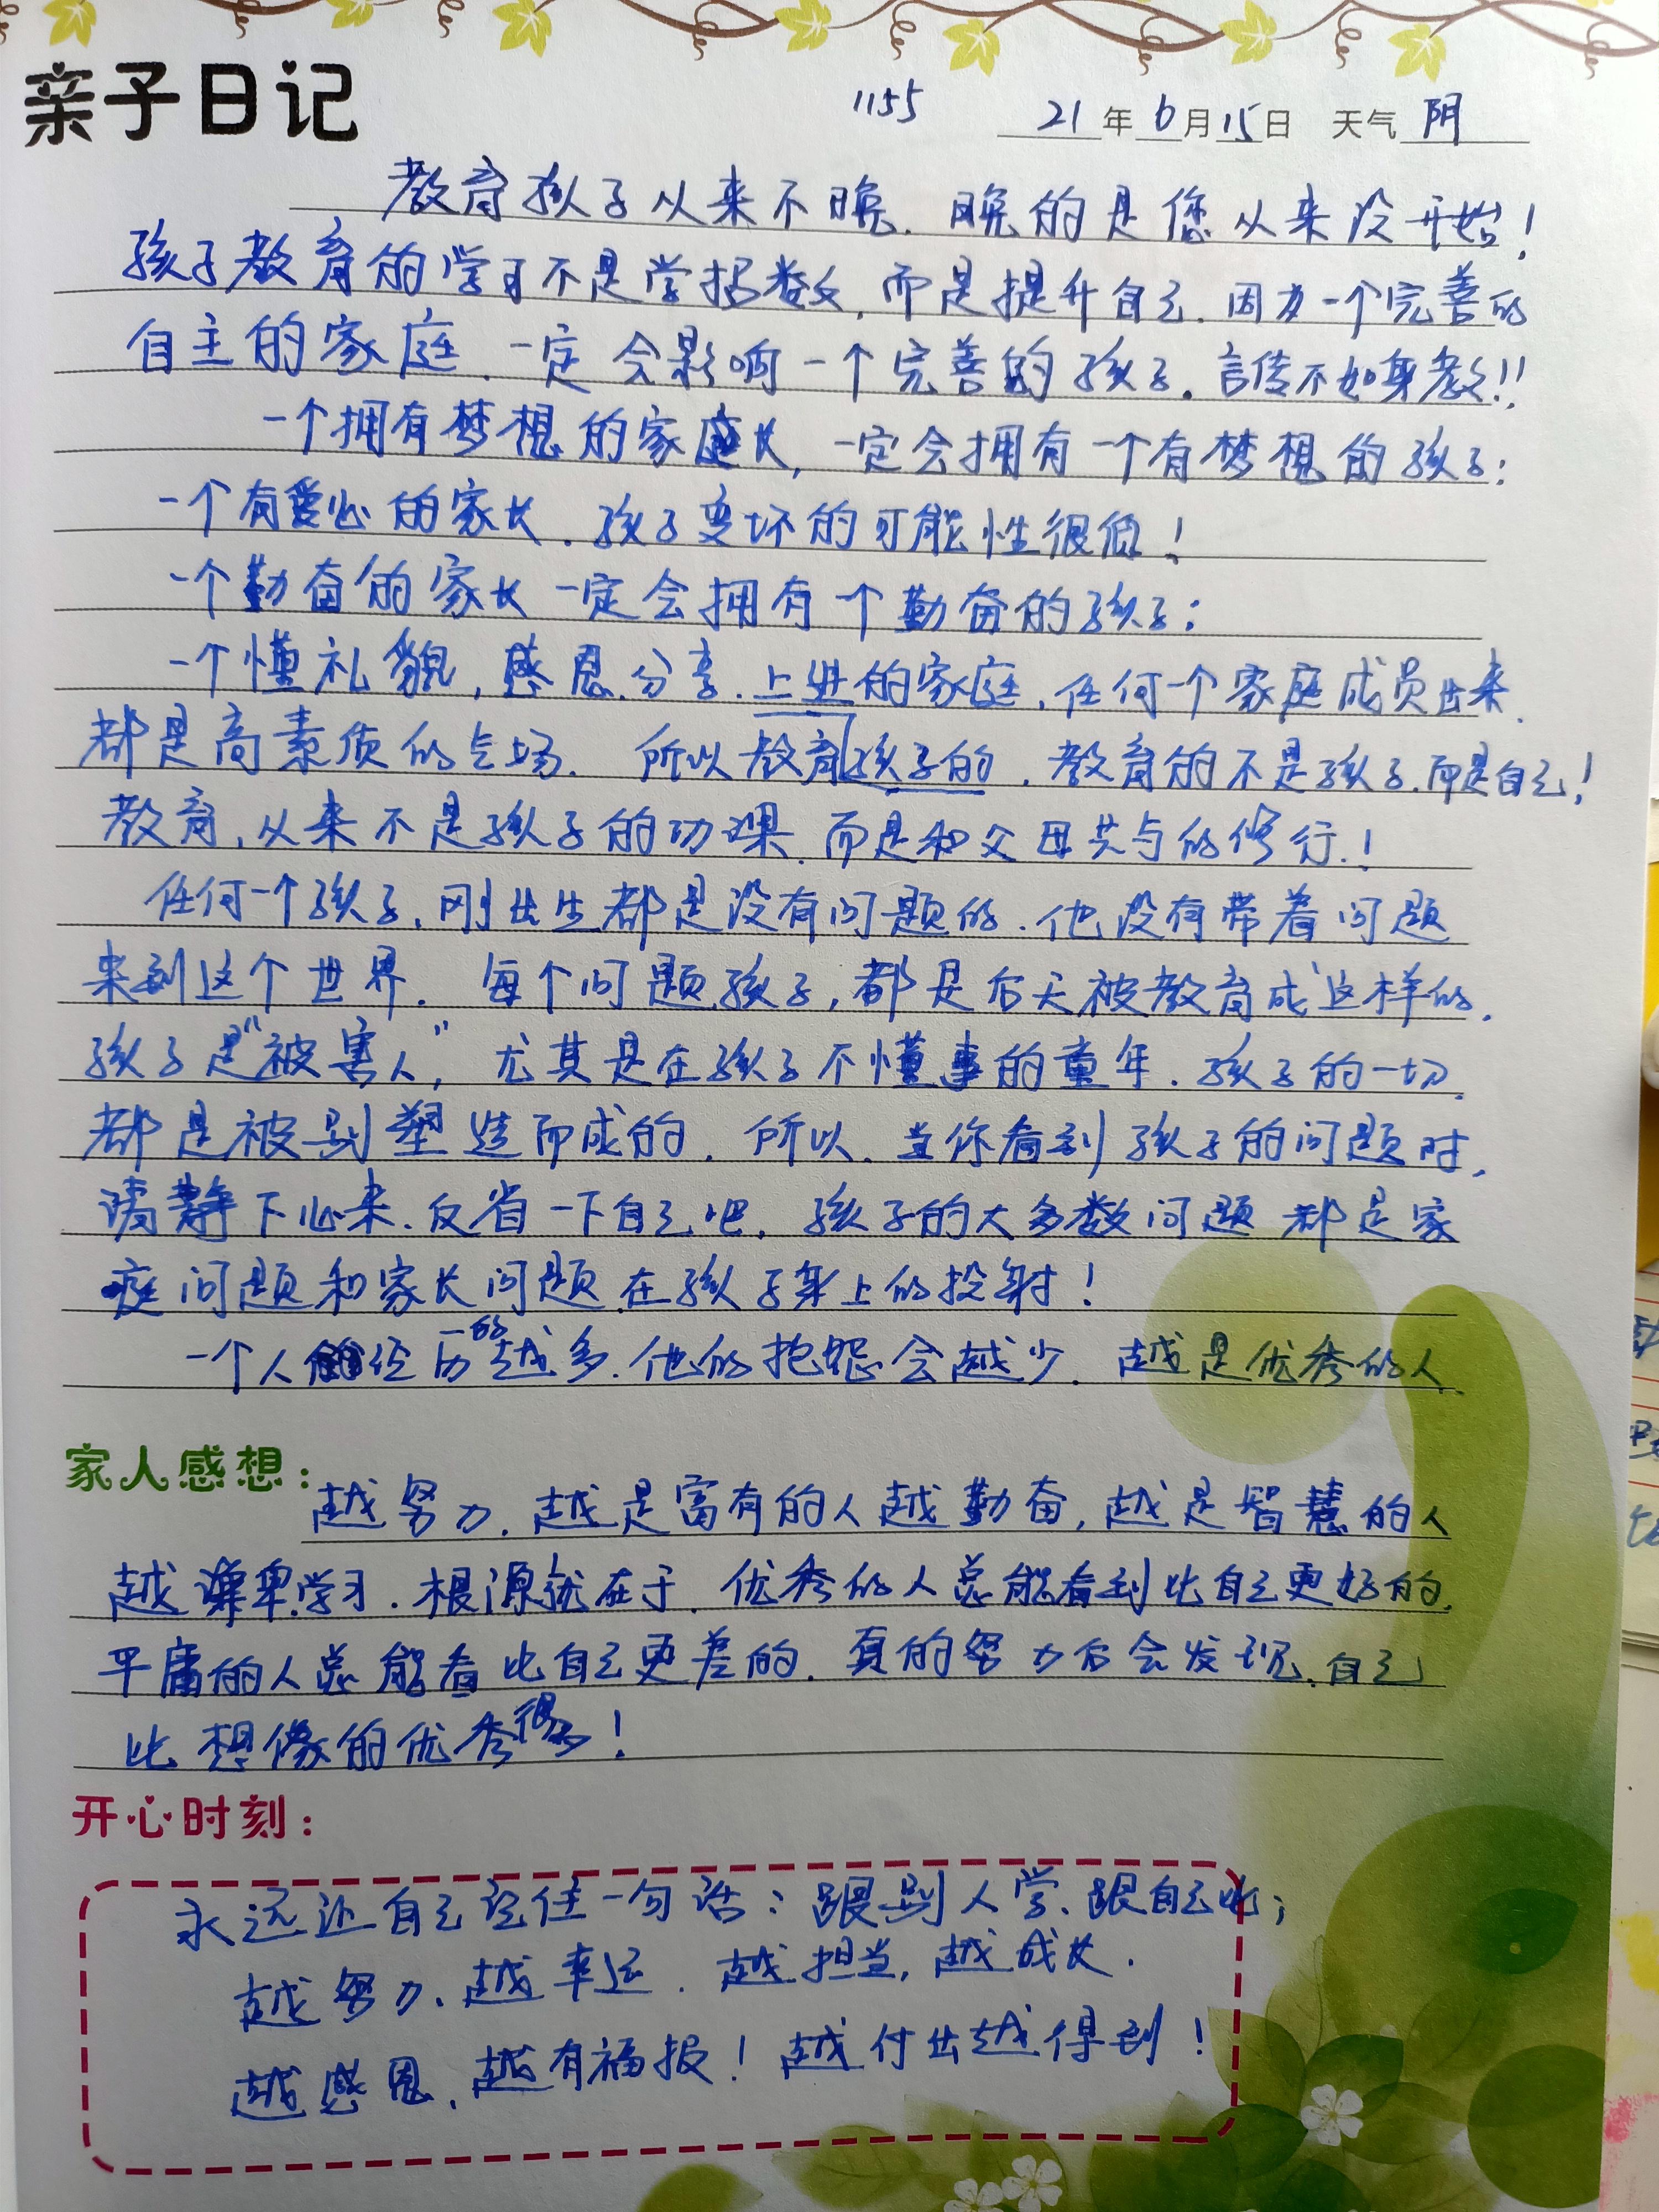 亲子日记
1155 21年6月15日 天气 阴
教育孩子从来不晚.晚的是您从来没开始！
孩子教育的学习不是学招数,而是提升自己.因为一个完善的
自主的家庭.一定会影响一个完善的孩子.言传不如身教!!
一个拥有梦想的家庭长,一定会拥有一个有梦想的孩子；
一个有爱心的家长.孩子变坏的可能性很低！
一个勤奋的家长一定会拥有一个勤奋的孩子；
一个懂礼貌,感恩.分享.上进的家庭,任何一个家庭成员出来.
都是高素质的气场. 所以教育孩子的.教育的不是孩子.而是自己！
教育,从来不是孩子的功课.而是和父母共与的修行.！
任何一个孩子.刚出生都是没有问题的.他没有带着问题
来到这个世界. 每个问题孩子,都是后天被教育成这样的.
孩子是“被害人”,尤其是在孩子不懂事的童年.孩子的一切.
都是被别塑造而成的.所以.当你看到孩子的问题时.
请静下心来.反省一下自己吧.孩子的大多数问题都是家
庭问题和家长问题.在孩子身上的投射！
一个人经历的越多.他的抱怨会越少.越是优秀的人.
家人感想：
越努力.越是富有的人越勤奋,越是智慧的人
越谦卑学习.根源就在于.优秀的人总能看到比自己更好的.
平庸的人总能看比自己更差的.真的努力后会发现.自己
比想像的优秀得多！
开心时刻：
永远让自己记住一句话：跟别人学.跟自己比；
越努力.越幸运.越担当,越成长.
越感恩.越有福报！越付出越得到！